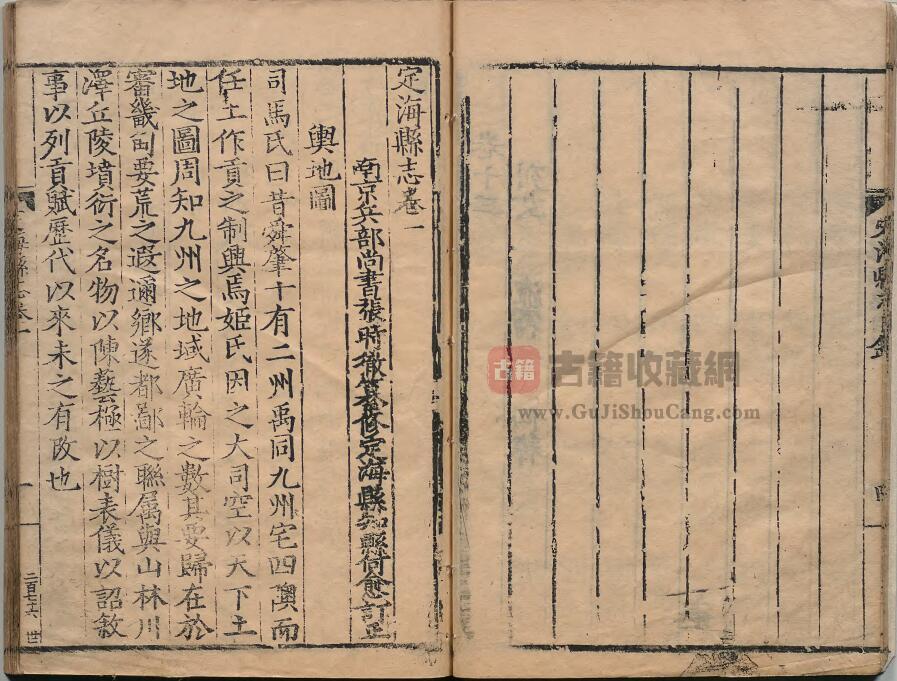 定海縣志卷一
南京兵部尚書張時徹纂修定海縣知縣何愈訂正
輿地圖
司馬氏曰昔舜肇十有二州禹同九州宅四隩而
任土作貢之制興焉姬氏因之大司空以天下土
地之圖周知九州之地域廣輪之數其要歸在於
審畿甸要荒之遐邇鄉遂都鄙之聯屬與山林川
澤丘陵墳衍之名物以陳藝極以樹表儀以詔敘
事以列貢賦歷代以來未之有改也
海縣志卷一
一
二百七十六 世
定海縣志目錄
四
古籍 古籍收藏網
www.GuJiShouCang.com